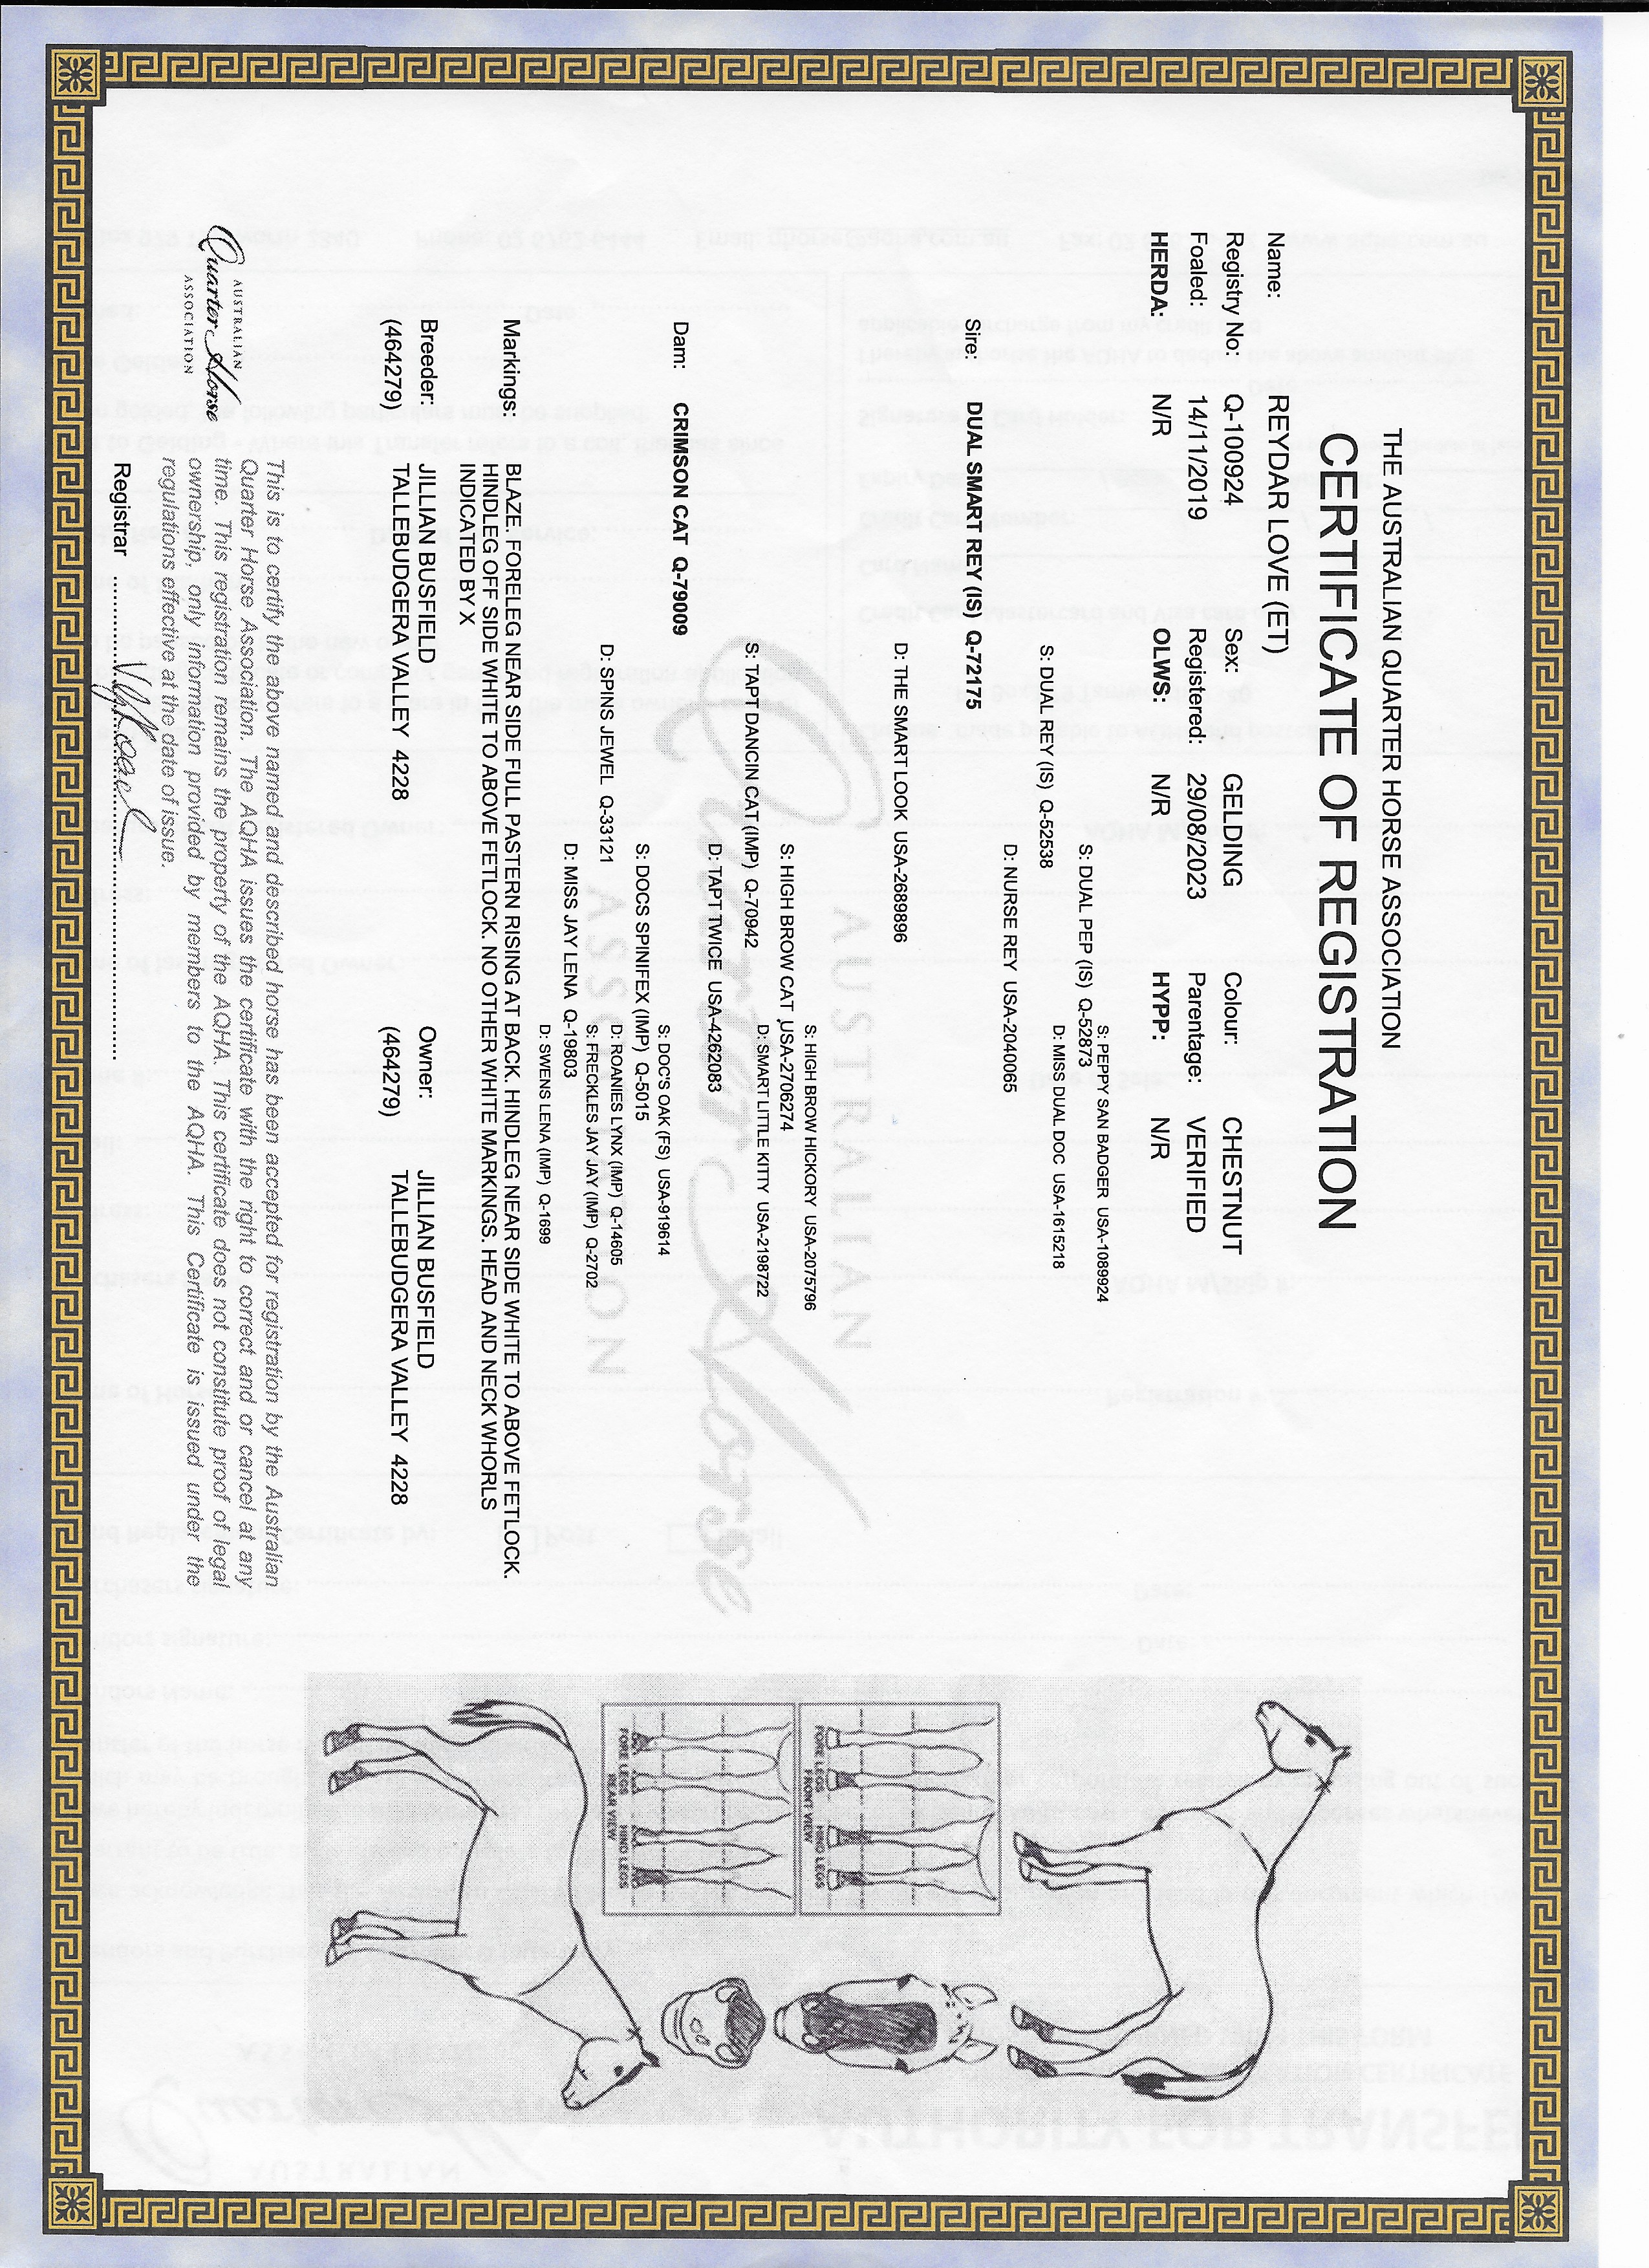 THE AUSTRALIAN QUARTER HORSE ASSOCIATION
CERTIFICATE OF REGISTRATION
Name: REYDAR LOVE (ET)
Registry No: Q-100924 Sex: GELDING Colour: CHESTNUT
Foaled: 14/11/2019 Registered: 29/08/2023 Parentage: VERIFIED
HERDA: N/R OLWS: N/R HYPP: N/R
S: PEPPY SAN BADGER USA-1089924
S: DUAL PEP (IS) Q-52873
D: MISS DUAL DOC USA-1615218
S: DUAL REY (IS) Q-52538
D: NURSE REY USA-2040065
Sire: DUAL SMART REY (IS) Q-72175
D: THE SMART LOOK USA-2689896
S: HIGH BROW HICKORY USA-2075796
S: HIGH BROW CAT USA-2706274
D: SMART LITTLE KITTY USA-2198722
S: TAPT DANCIN CAT (IMP) Q-70942
D: TAPT TWICE USA-4262083
Dam: CRIMSON CAT Q-79009
S: DOC'S OAK (FS) USA-919614
S: DOCS SPINIFEX (IMP) Q-5015
D: ROANIES LYNX (IMP) Q-14605
D: SPINS JEWEL Q-33121
S: FRECKLES JAY JAY (IMP) Q-2702
D: MISS JAY LENA Q-19803
D: SWENS LENA (IMP) Q-1699
Markings: BLAZE. FORELEG NEAR SIDE FULL PASTERN RISING AT BACK. HINDLEG NEAR SIDE WHITE TO ABOVE FETLOCK.
HINDLEG OFF SIDE WHITE TO ABOVE FETLOCK. NO OTHER WHITE MARKINGS. HEAD AND NECK WHORLS
INDICATED BY X
Breeder: JILLIAN BUSFIELD Owner: JILLIAN BUSFIELD
(464279) TALLEBUDGERA VALLEY 4228 (464279) TALLEBUDGERA VALLEY 4228
This is to certify the above named and described horse has been accepted for registration by the Australian
Quarter Horse Association. The AQHA issues the certificate with the right to correct and or cancel at any
time. This registration remains the property of the AQHA. This certificate does not constitute proof of legal
ownership, only information provided by members to the AQHA. This Certificate is issued under the
regulations effective at the date of issue.
Registrar
AUSTRALIAN
Quarter Horse
ASSOCIATION
AUSTRALIAN
Quarter Horse
ASSOCIATION
FORE LEGS HIND LEGS
FRONT VIEW
FORE LEGS HIND LEGS
REAR VIEW